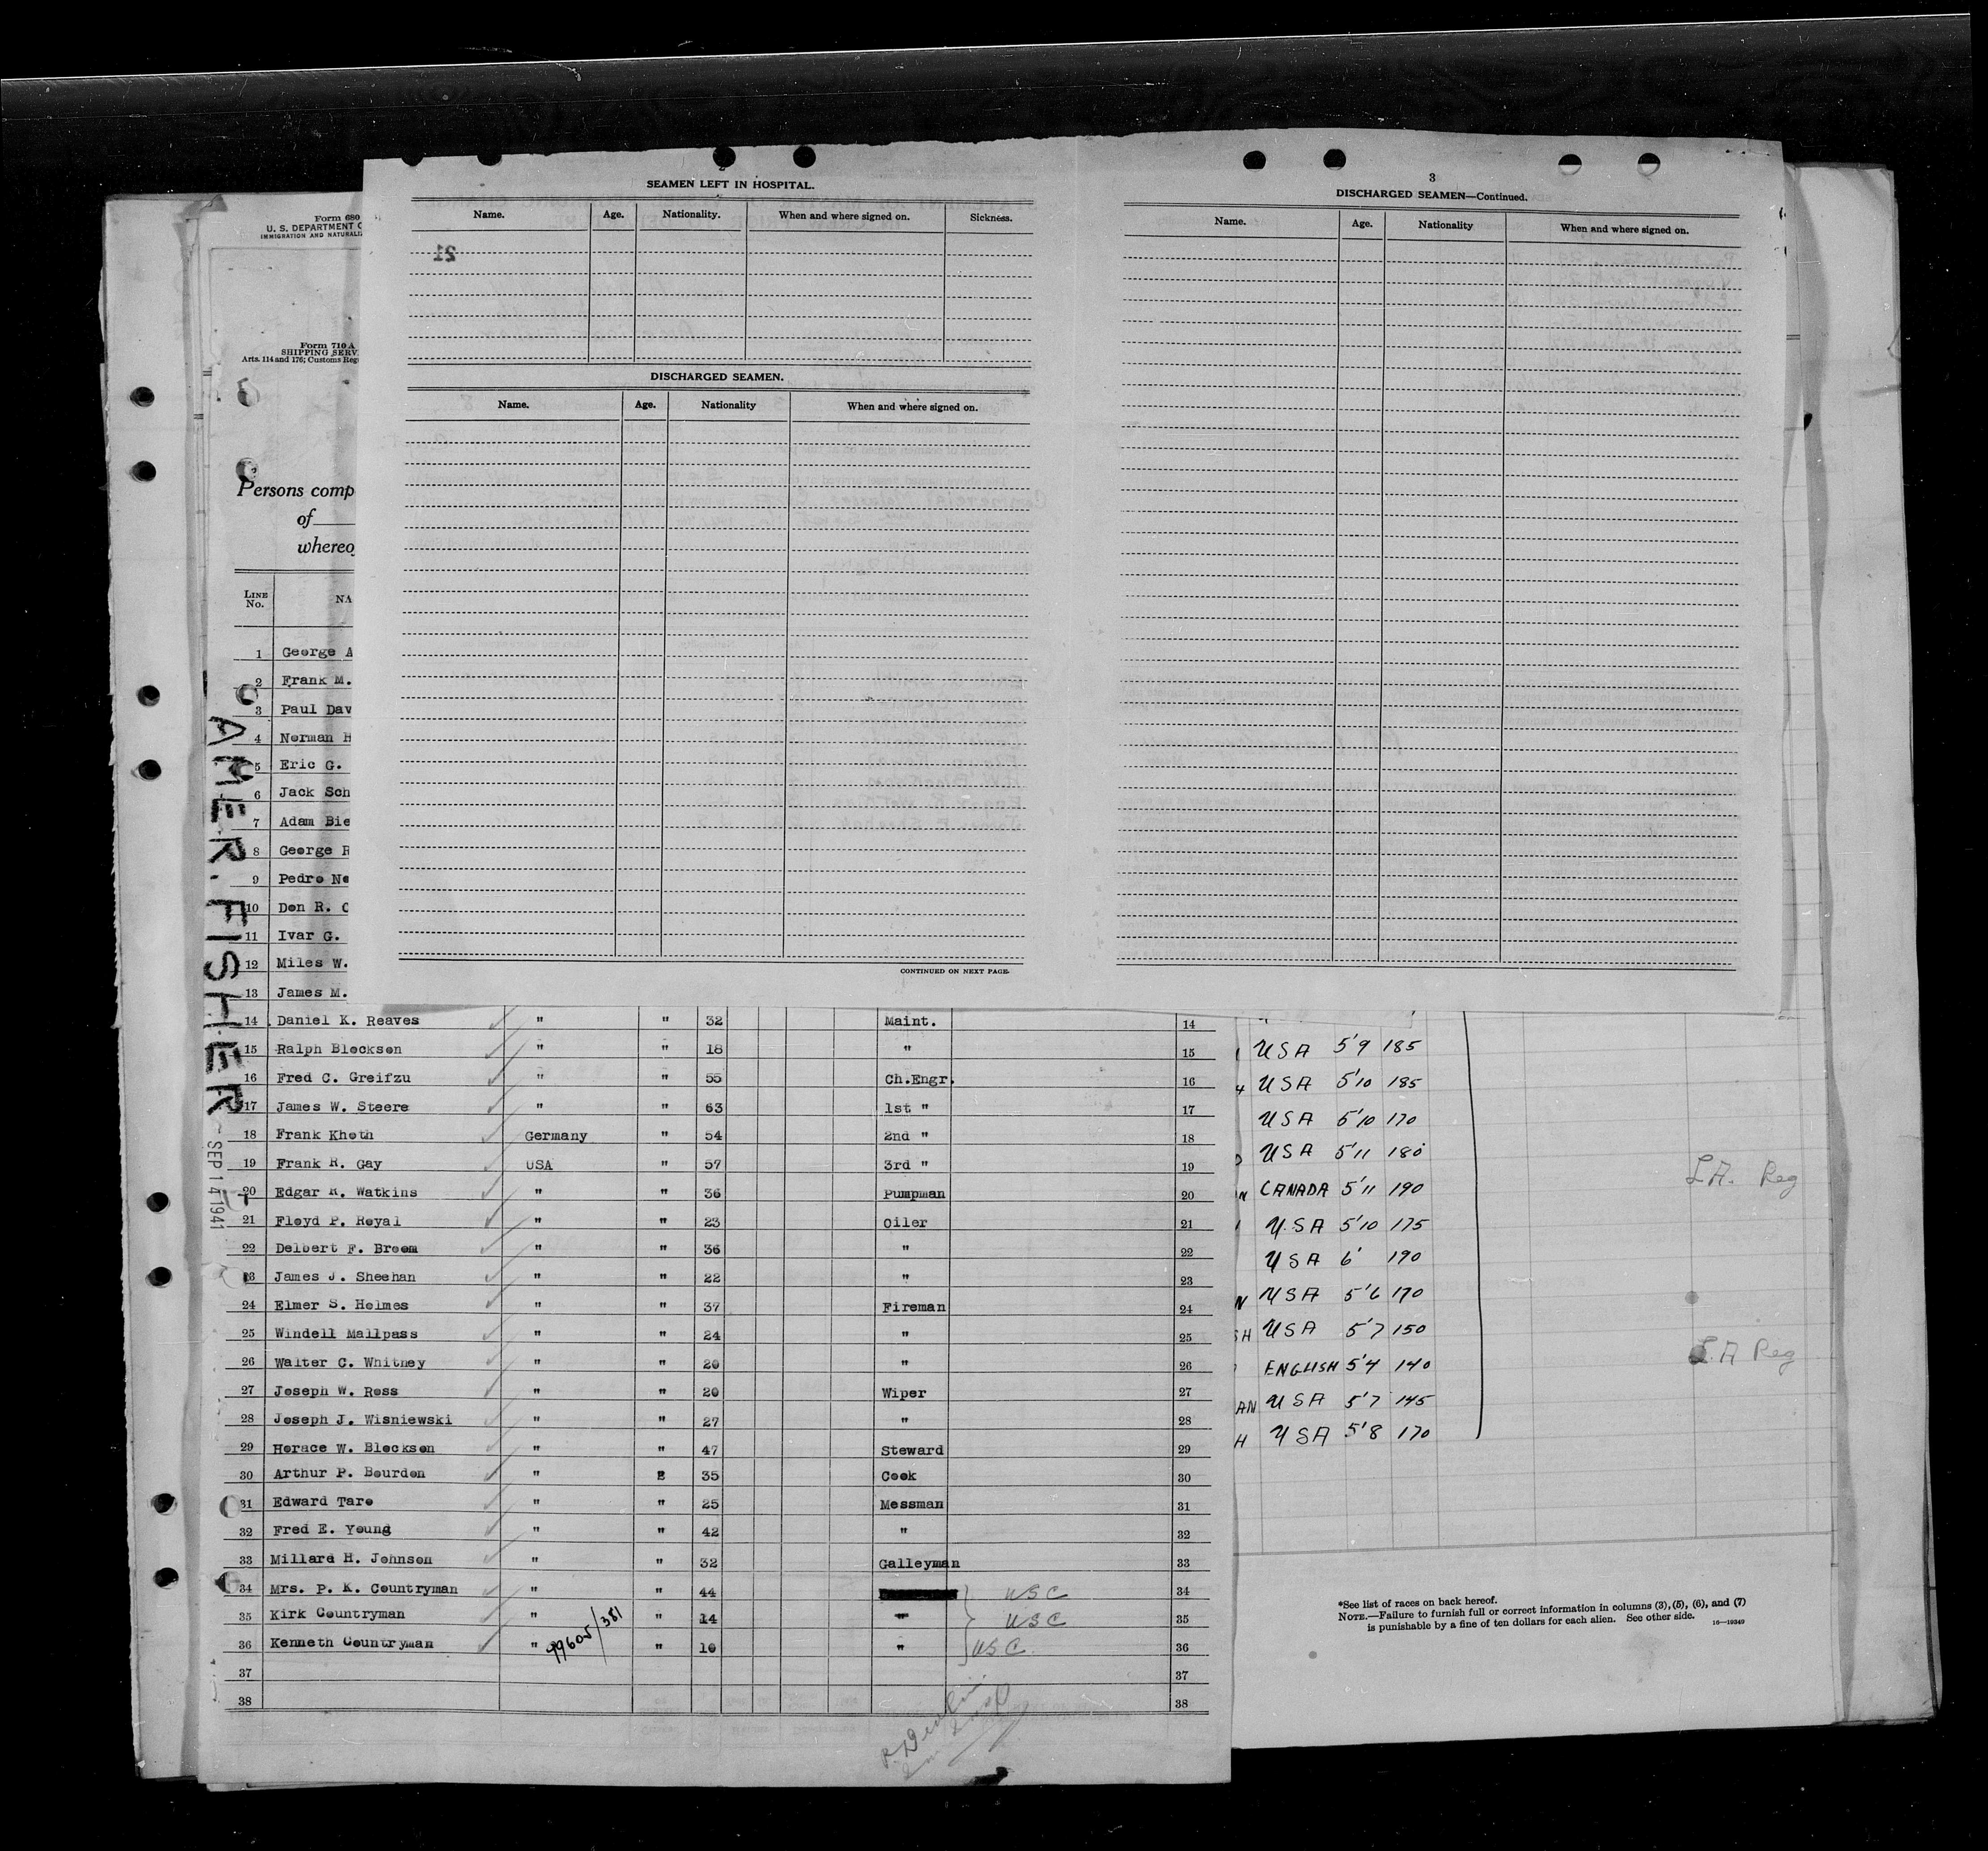 2
SEAMEN LEFT IN HOSPITAL.
Name. Age. Nationality. When and where signed on. Sickness.
21
DISCHARGED SEAMEN.
Name. Age. Nationality When and where signed on.
CONTINUED ON NEXT PAGE.
3
DISCHARGED SEAMEN—Continued.
Name. Age. Nationality When and where signed on.
Form 680
U. S. DEPARTMENT O
IMMIGRATION AND NATURALI
Form 710 A
SHIPPING SERV
Arts. 114 and 176; Customs Reg
Persons comp
of
whereo
LINE No. NA
1 George A
2 Frank M.
3 Paul Dav
4 Norman H
5 Eric G.
6 Jack Sch
7 Adam Bie
8 George R
9 Pedro Ne
10 Don R. C
11 Ivar G.
12 Miles W.
13 James M.
14 Daniel K. Reaves " " 32 Maint. 14
15 Ralph Blockson " " 18 " 15
16 Fred C. Greifzu " " 55 Ch.Engr. 16
17 James W. Steere " " 63 1st " 17
18 Frank Khoth Germany " 54 2nd " 18
19 Frank R. Gay USA " 57 3rd " 19
20 Edgar R. Watkins " " 36 Pumpman 20
21 Floyd P. Royal " " 23 Oiler 21
22 Delbert F. Broom " " 36 " 22
23 James J. Sheehan " " 22 " 23
24 Elmer S. Holmes " " 37 Fireman 24
25 Windell Mallpass " " 24 " 25
26 Walter C. Whitney " " 20 " 26
27 Joseph W. Ross " " 20 Wiper 27
28 Joseph J. Wisniewski " " 27 " 28
29 Horace W. Blockson " " 47 Steward 29
30 Arthur P. Bourdon " " 35 Cook 30
31 Edward Taro " " 25 Messman 31
32 Fred E. Young " " 42 " 32
33 Millard H. Johnson " " 32 Galleyman 33
34 Mrs. P. K. Countryman " " 44 USC 34
35 Kirk Countryman " " 14 " USC 35
36 Kenneth Countryman " " 10 " USC 36
99605/381
37 37
38 38
AMER. FISHER
SEP 14 1941
USA 5'9 185
4 USA 5'10 185
USA 5'10 170
USA 5'11 180
N CANADA 5'11 190
USA 5'10 175
USA 6' 190
N USA 5'6 170
SH USA 5'7 150
ENGLISH 5'4 140
AN USA 5'7 145
H USA 5'8 170
L.A. Reg
L.A Reg
*See list of races on back hereof.
NOTE.—Failure to furnish full or correct information in columns (3), (5), (6), and (7)
is punishable by a fine of ten dollars for each alien. See other side. 16—19349